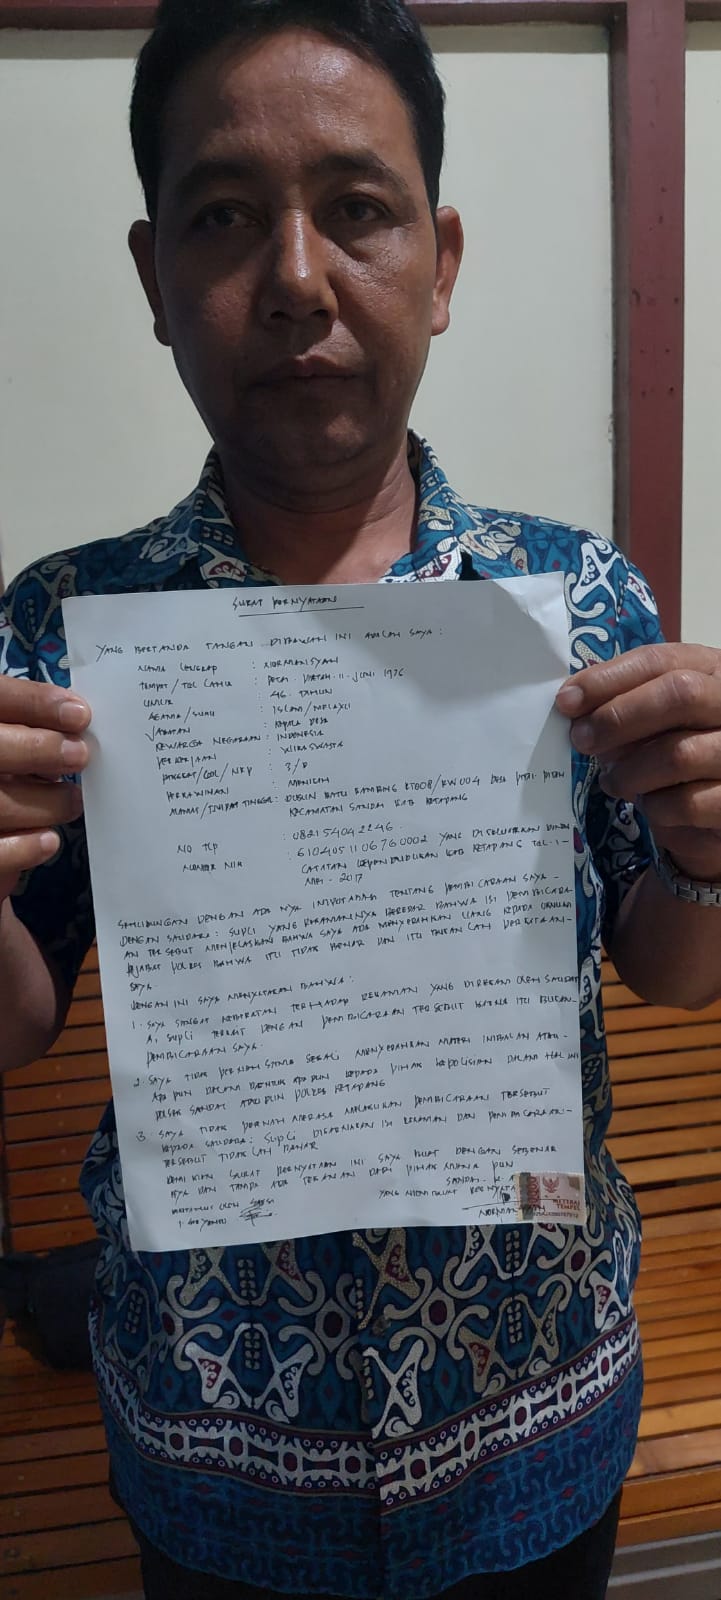 SURAT PERNYATAAN
YANG BERTANDA TANGAN DIBAWAH INI ADALAH SAYA :
NAMA LENGKAP : NORMANSYAH
TEMPAT / TGL LAHIR : PETAI PATAH . 11 . JUNI 1976
UMUR : 46 . TAHUN
AGAMA / SUKU : ISLAM / MELAYU
JABATAN : KEPALA DESA
KEWARGA NEGARAAN : INDONESIA
PEKERJAAN : WIRASWASTA
PANGKAT / GOL / NRP : 3 /
PERKAWINAN : MENIKAH
DUSUN BATU RT008 / RW004 DESA PETAI PATAH
KECAMATAN SANDAI KAB KETAPANG
NO TLP : 082154042246 .
NOMOR NIK : 6104051106760002 YANG DI KELUARKAN
CATATAN KEPENDUDUKAN KAB KETAPANG TGL . 1 -
MEI - 2017
SEHUBUNGAN DENGAN ADA NYA TENTANG PEMBICARAAN SAYA -
DENGAN SAUDARA : SUPLI YANG REKAMANNYA BEREDAR BAHWA ISI PEMBICARA
AN TERSEBUT MENJELASKAN BAHWA SAYA ADA MENYERAHKAN UANG KEPADA
PEJABAT POLRES BAHWA ITU TIDAK BENAR DAN ITU BUKAN LAH PERKATAAN -
SAYA .
DENGAN INI SAYA MENYATAKAN BAHWA :
1 . SAYA SANGAT KEBERATAN TERHADAP REKAMAN YANG DIREKAM OLEH SAUDAR
A , SUPLI TERKAIT DENGAN PEMBICARAAN TERSEBUT KARNA ITU BUKAN -
PEMBICARAAN SAYA .
2 . SAYA TIDAK PERNAH SAMA SEKALI MENYERAHKAN MATERI IMBALAN ATAU -
APA PUN DALAM BENTUK APA PUN KEPADA PIHAK KEPOLISIAN DALAM HAL INI
POLSEK SANDAI ATAU PUN POLRES KETAPANG
3 . SAYA TIDAK PERNAH MERASA MELAKUKAN PEMBICARAAN TERSEBUT
KEPADA SAUDARA : SUPLI DIKARNAKAN ISI REKAMAN DAN PEMBICARAAN -
TERSEBUT TIDAK LAH BENAR
DEMIKIAN SURAT PERNYATAAN INI SAYA BUAT DENGAN SEBENAR
NYA DAN TANPA ADA TEKANAN DARI PIHAK MANA PUN
SANDAI .
OLEH SAKSI YANG MEMBUAT PERNYATA
METERAI
TEMPEL
NORMANSYAH